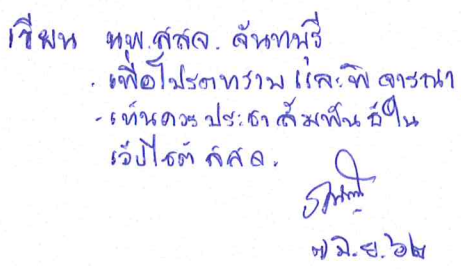 เรียน นพ.สสจ. จันทบุรี
- เพื่อโปรดทราบและพิจารณา
- เห็นควรประชาสัมพันธ์ใน
เว็บไซต์ สสจ.
๗ มิ.ย. ๖๒